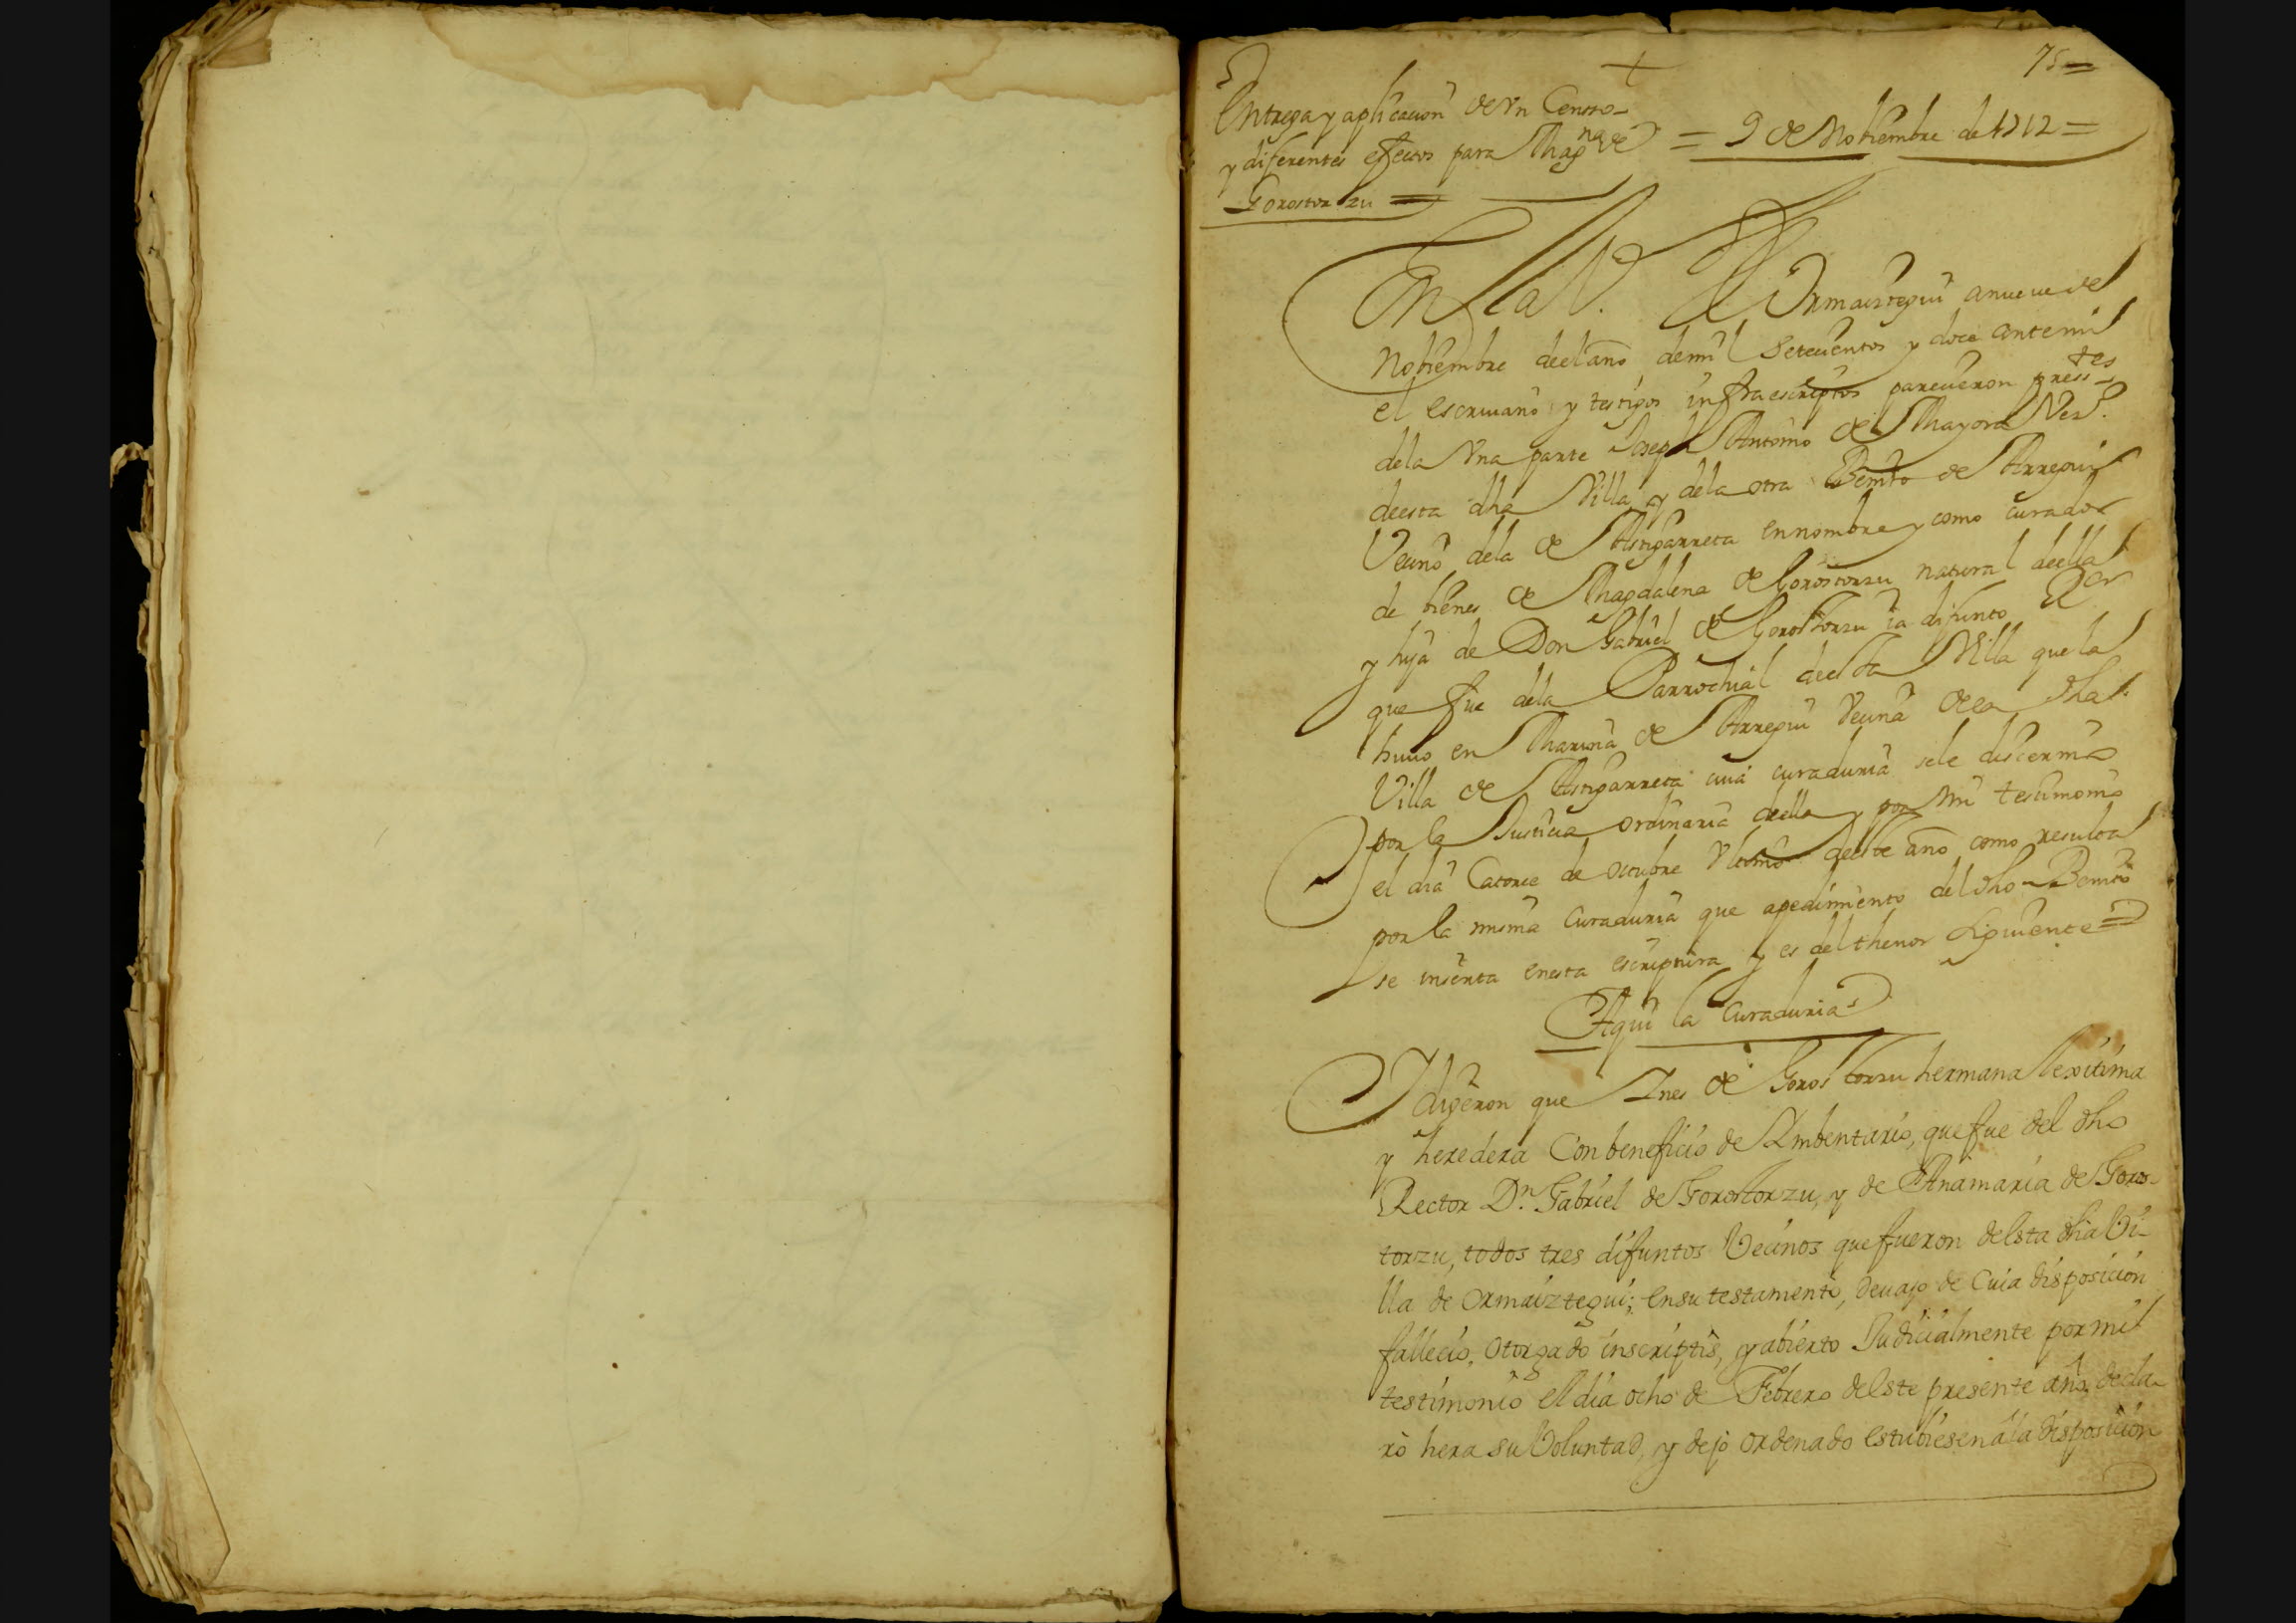 +
75=
Entrega y aplicacion de Vn Censso
y diferentes efectos para Magna de = 9 de Nobiembre de 1712 =
Gorostorzu =
En la V. de Ormaiztegui a nueue de
Nobiembre de el año de mil Setecientos y doce ante mi
el escriuano y testigos infraescriptos parecieron presstes
de la Vna parte Joseph Antonio de Mayora Vezo.
de esta dha Villa y de la otra Benito de Arregui
Vecino de la de Astigarreta en nombre y como curador
de bienes de Magdalena de Gorostorzu natural de ella
y hija de Don Gabriel de Gorostorzu ia difunto Ror
que fue de la Parrochial de esta Villa que la
huuo en Marina de Arregui Vecina de la dha
Villa de Astigarreta cuia curaduria se le discernio
por la Justicia ordinaria de ella y por Mi testimonio
el dia Catorce de octubre Vltimo de este año como resulta
por la misma Curaduria que a pedimiento del dho Benito
se inserta en esta escriptura y es del thenor siguiente =
Aqui la Curaduria
I digeron que Ines de Gorostorzu hermana lexitima
y heredera Con beneficio de Imbentario, que fue del dho
Rector Dn. Gabriel de Gorostorzu, y de Anamaria de Goros-
torzu, todos tres difuntos Vecinos que fueron de esta dha Vi-
lla de Ormaiztegui; en su testamento, deuajo de Cuia disposicion
fallecio, otorgado inscriptis, y abierto Judicialmente por mi
testimonio el dia ocho de Febrero de este presente año, decla-
rò hera su Voluntad, y dejò ordenado estubiesen à la disposicion